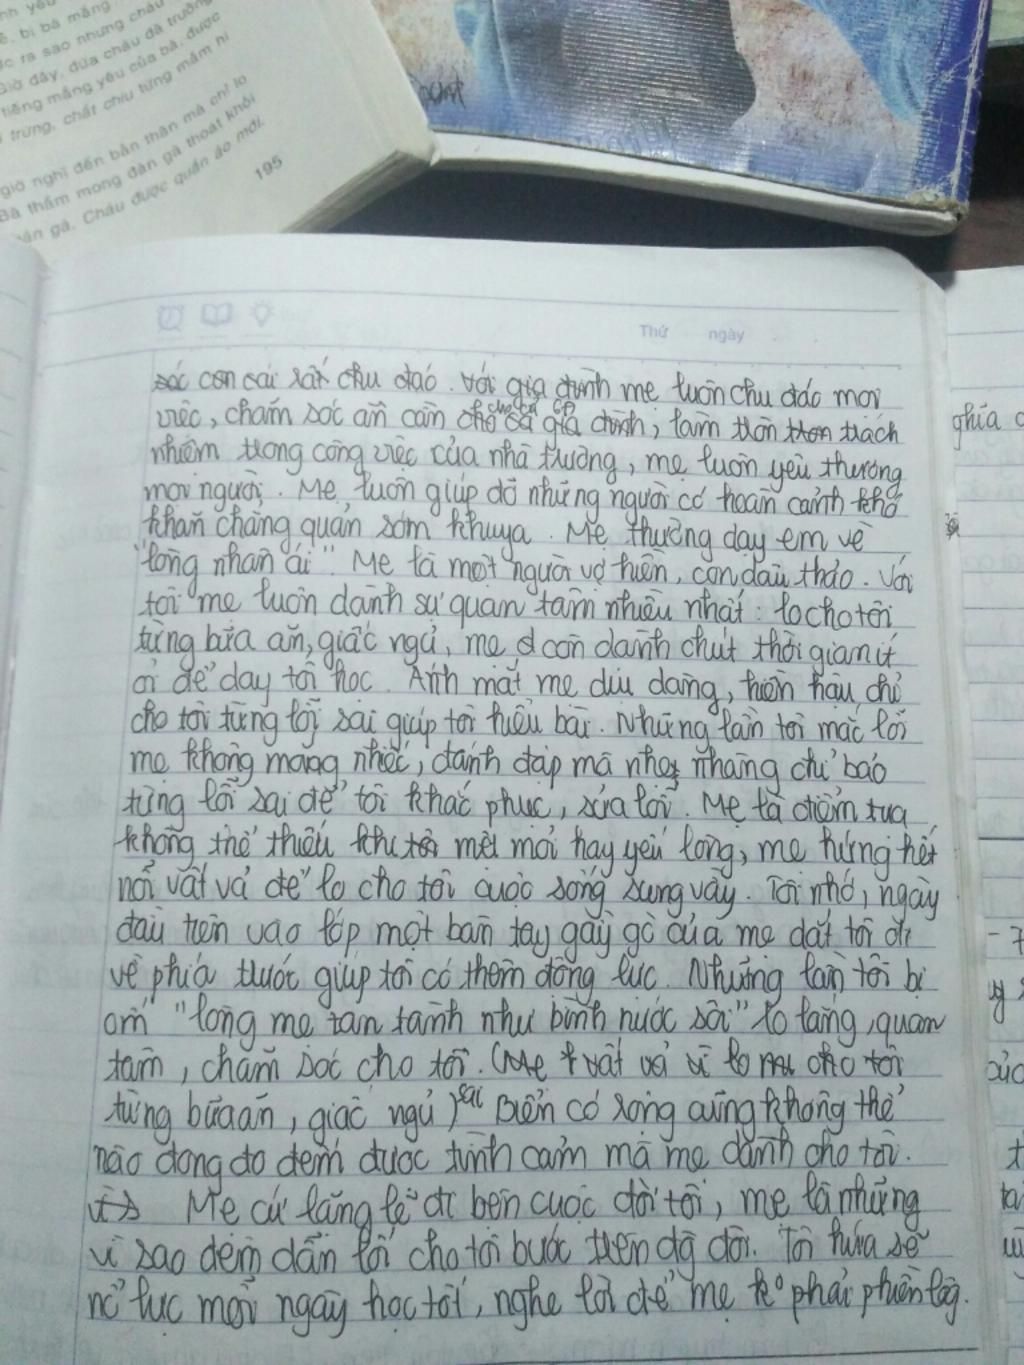 ê, bị bà mắng
ợc ra sao nhưng cháu
Giờ đây, đứa cháu đã trưởng
tiếng mắng yêu của bà, được
trứng, chắt chiu từng mầm ni
giờ nghĩ đến bản thân mà chỉ lo
Bà thầm mong đàn gà thoát khỏi
bán gà. Cháu được quần áo mới.
195
Thứ ngày
sóc con cái rất chu đáo. Với gia đình mẹ luôn chu đáo mọi
việc, chăm sóc ân cần cho cả gia đình, làm tròn tron trách
nhiệm trong công việc của nhà trường, mẹ luôn yêu thương
mọi người. Mẹ luôn giúp đỡ những người có hoàn cảnh khó
khăn chẳng quản sớm khuya. Mẹ thường dạy em về
"lòng nhân ái". Mẹ là một người vợ hiền, con dâu thảo. Với
tôi mẹ luôn dành sự quan tâm nhiều nhất: lo cho tôi
từng bữa ăn, giấc ngủ, mẹ còn dành chút thời gian ít
ỏi để dạy tôi học. Ánh mắt mẹ dịu dàng, hiền hậu chỉ
cho tôi từng lỗi sai giúp tôi hiểu bài. Những lần tôi mắc lỗi
mẹ không mang nhiếc, đánh đập mà nhẹ nhàng chỉ bảo
từng lỗi sai để tôi khắc phục, sửa lỗi. Mẹ là điểm tựa
không thể thiếu khi tôi mệt mỏi hay yếu lòng, mẹ hứng hết
nỗi vất vả để lo cho tôi cuộc sống sung vầy. Tôi nhớ, ngày
đầu tiên vào lớp một bàn tay gầy gò của mẹ dắt tôi đi
về phía trước giúp tôi có thêm động lực. Những lần tôi bị
ốm "lòng mẹ tan tành như bình nước sôi" lo lắng, quan
tâm, chăm sóc cho tôi. (Mẹ vất vả vì lo cho tôi
từng bữa ăn, giấc ngủ) sai Biển có rộng cũng không thể
nào đong đo đếm được tình cảm mà mẹ dành cho tôi.
Mẹ cứ lặng lẽ đi bên cuộc đời tôi, mẹ là những
vì sao đêm dẫn lối cho tôi bước trên đg đời. Tôi hứa sẽ
nổ lực mỗi ngày học tốt, nghe lời để mẹ ko phải phiền lòg.